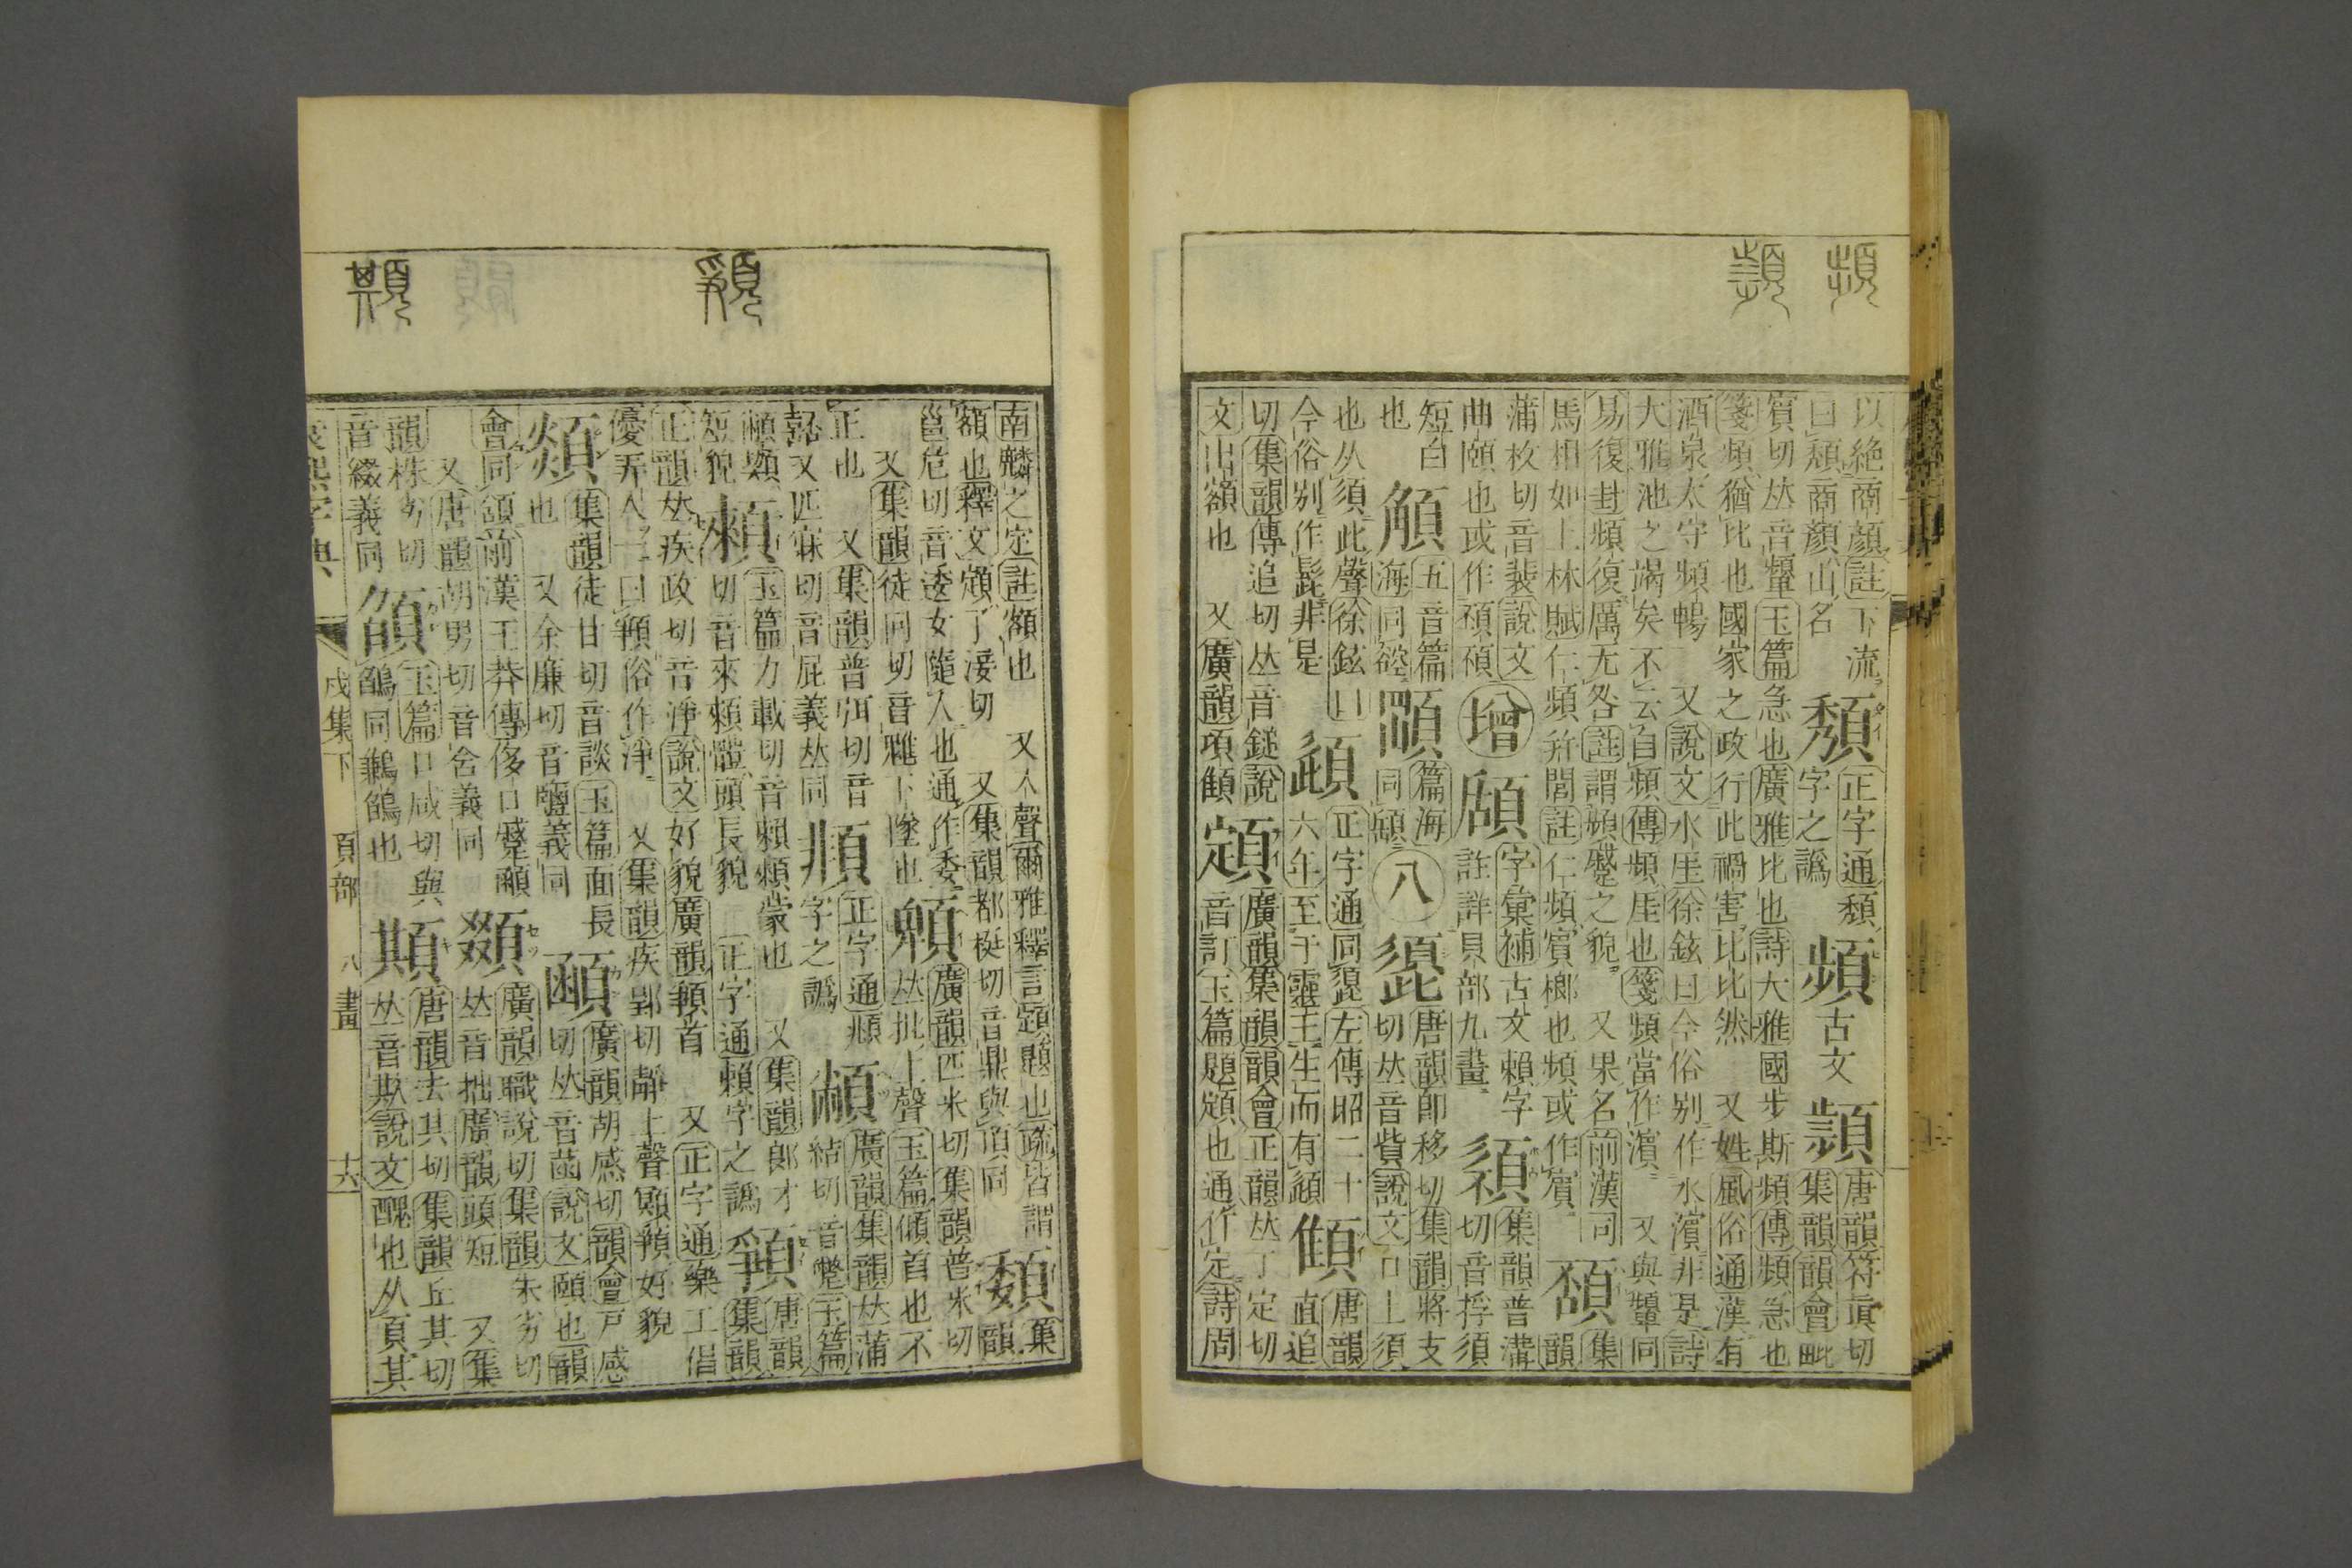 以絶商顏註下流
曰頹商顏山名
頹
正字通頽
字之譌
頻
古文
唐韻符眞切
集韻韻會毗
賓切𠀤音顰玉篇急也廣雅比也詩大雅國步斯頻傳頻急也
箋頻猶比也國家之政行此禍害比比然 又姓風俗通漢有
酒泉太守頻暢 又說文水厓徐鉉曰今俗別作水濱非是詩
大雅池之竭矣不云自頻傳頻厓也箋頻當作濱 又與顰同
易復封頻復厲无咎註謂頻蹙之貌 又果名前漢司
馬相如上林賦仁頻幷閭註仁頻賓榔也頻或作賔
集
韻
蒲枚切音裴說文
曲頤也或作
增
字彙補古文賴字
註詳貝部九畫
集韻普溝
切音抔須
短白
也
五音篇
海同
篇海
同顧
八
頾
唐韻卽移切集韻將支
切𠀤音貲說文口上須
也从須此聲徐鉉曰
今俗別作髭非是
正字通同頾左傳昭二十
六年至于靈王生而有頿
顀
唐韻
直追
切集韻傳追切𠀤音鎚說
文出額也 又廣韻項顀
顁
廣韻集韻韻會正韻𠀤丁定切
音訂玉篇題顁也通作定詩周
南麟之定註額也 又入聲爾雅釋言顁題也疏皆謂
額也釋文顁丁佞切 又集韻都梃切音鼎與頂同
集
韻
邕危切音逶女隨人也通作委
又集韻徒同切音 下墜也
顊
廣韻匹米切集韻普米切
𠀤批上聲玉篇傾首也不
正也 又集韻普弭切音
諀又匹寐切音屁義𠀤同
正字通顊
字之譌
廣韻集韻𠀤蒲
結切音蹩玉篇
短貌
玉篇力載切音賴 蒙也 又集韻郎才
切音來 體頭長貌 正字通賴字之譌
䫆
唐韻
集韻
正韻𠀤疾政切音淨說文好貌廣韻䫆首 又正字通樂工倡
優弄人一曰䫆俗作淨 又集韻疾郢切靜上聲 䫆好貌
顃
集韻徒甘切音談玉篇面長
也 又余廉切音鹽義同
顄
廣韻胡感切韻會戸感
切𠀤音菡說文頤也韻
會同頷前漢王莽傳侈口蹷顄
又唐韻胡男切音含義同
䫎
廣韻職說切集韻朱劣切
𠀤音拙廣韻頭短 又集
韻株劣切
音綴義同
䫡
玉篇口咸切與
鵮同鶼鵮也
䫏
唐韻去其切集韻丘其切
𠀤音欺說文醜也从頁其
康熙字典
戌集下 頁部 八畫 十六